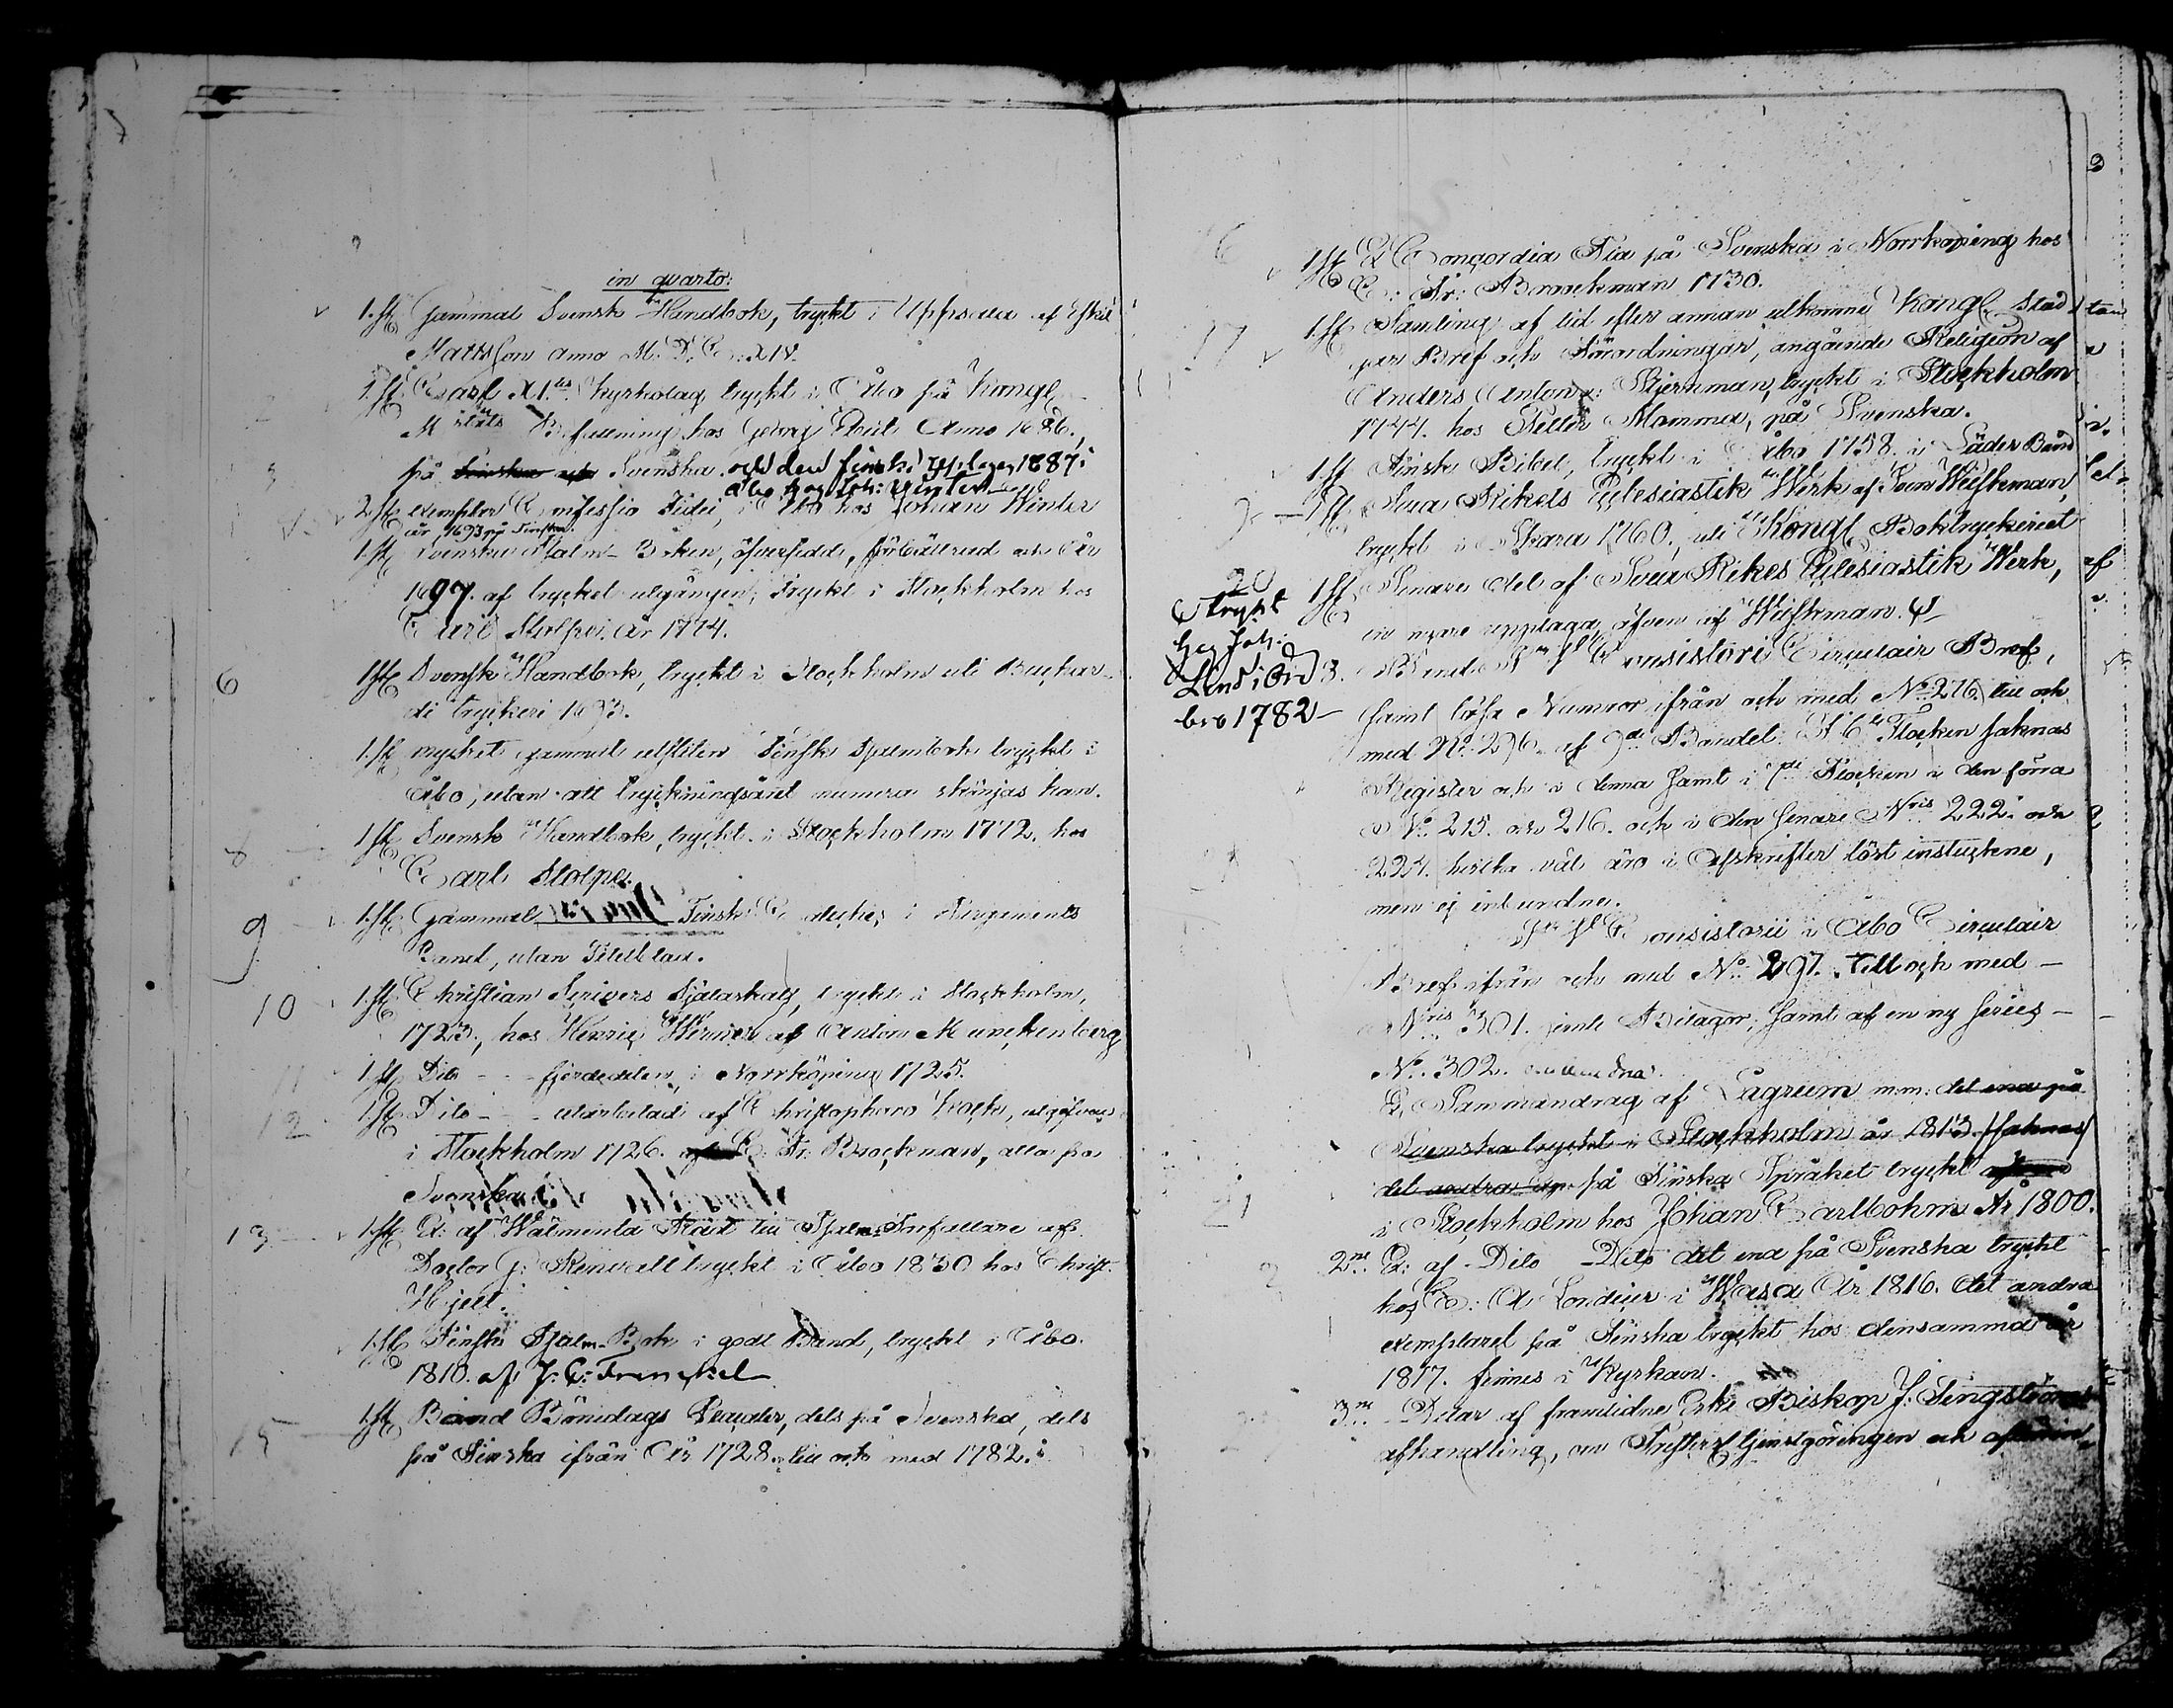 in quarto:
1. st. Gammal Svensk Handbok, tryckt i Uppsala af Eskil
Mattsson anno M. D. C. XIV.
1. st. Carl XI:tes Kyrkolag tryckt i Åbo på Kongl.
M:städts Befallning hos Georg Anno 1686.,
3 på Finska och Svenska. och den finska Uplagan 1687 i
Åbo hos Joh: Winter
2. st. exemplar Confessio Fidei, i Åbo hos Johan Winter
år 1693 på Finska.
1. st. Svenska Psalm-Boken, öfversedd, förbättrad och År
1697. af trycket utgången; Tryckt i Stockholm hos
Carl Stolpe, år 1774.
6 1. st. Svensk Handbok, tryckt i Stockholm uti Burchar-
di tryckeri 1693.
1. st. mycket gammal utsliten Finsk Psalmbok tryckt i
Åbo, utan att tryckningsåret numera skönjas kan.
8 1. st. Svensk Handbok, tryckt i Stockholm 1772. hos
Carl Stolpe.
9 1. st. Gammal Finsk Cateches i Pergaments
Band, utan Titelblad.
10 1. st. Christian Scrivers Själaskatt, tryckt i Stockholm,
1723., hos Henric Werner af Anton Munchenberg
11 1. st. Dito - - - fjerdedelen, i Norrköping 1725.
12 1. st. Dito - - - utarbetad af Christophoro utgifven
i Stockholm 1726. af C. Fr. Brockman, alla på
Svenska
13 1. st. Ex: af Wälmenta Råd till Psalm-Författare af
Doctor J: Renvall tryckt i Åbo 1830 hos Christ.
Hjelt.
1. st. Finsk Psalm-Bok i godt Band, tryckt i Åbo
1810. af J. C. Frenckel
15 1. st. Band Bönedags Placater, dels på Svenska, dels
på Finska ifrån År 1728. till och med 1782.
6 1. st. Ex. Concordia Pia på Svenska i Norrköping hos
C: Fr: Broockman 1730.
17 1. st. Samling af tid efter annan utkomne Kongl. Stad
gar Bref och Förordningar, angående Religion af
Anders Anton v: Stjernman, tryckt i Stockholm
1744. hos Petter Momma, på Svenska.
1. st. Finsk Bibel, tryckt i Åbo 1758. i Läder Band
9 1. st. Svea Rikets Eclesiastik Werk af Sven Wilskman,
tryckt i Skara 1760., uti Kongl. Boktryckeriet
20 1. st. Senare del af Svea Rikes Eclesiastik Werk,
en nyare upplaga, äfven af Wilskman.
Tryckt
hos Joh:
Lind i Öre
bro 1782
3. Band Consistorii Circulair Bref,
samt lösa Numror ifrån och med N:o 276. till och
med N:o 296. af 9:de Bandet. Flocken saknas
Register och i denna samt i 7:de Flocken i den förra
N:o 215. och 216. och i den senare N:ris 222. och
224. hvilka väl äro i Afskrifter löst instuckne,
men ej inbundne.
Consistorii i Åbo Circulair
Bref ifrån och med N:o 297. Till och med -
N:ris 301. jemte Bilagor; samt af en ny series -
N:o 302.
Ex. Sammandrag af Lagrum m.m: det ena på
Svenska tryckt i Stockholm år 1813. (saknas)
det andra på Finska Språket tryckt
21 i Stockholm hos Johan Carlbohm År 1800.
2 2:ne Ex: af Dito Dito det ena på Svenska tryckt
hos C: A Londicer i Wasa År 1816. det andra
exemplaret på Finska tryckt hos densamma år
1817. finnes i Kyrkan.
3:ne Delar af framlidne Erke Biskop J: Tengströms
afhandling, om Presterl. tjenstgöringen och aflönin-